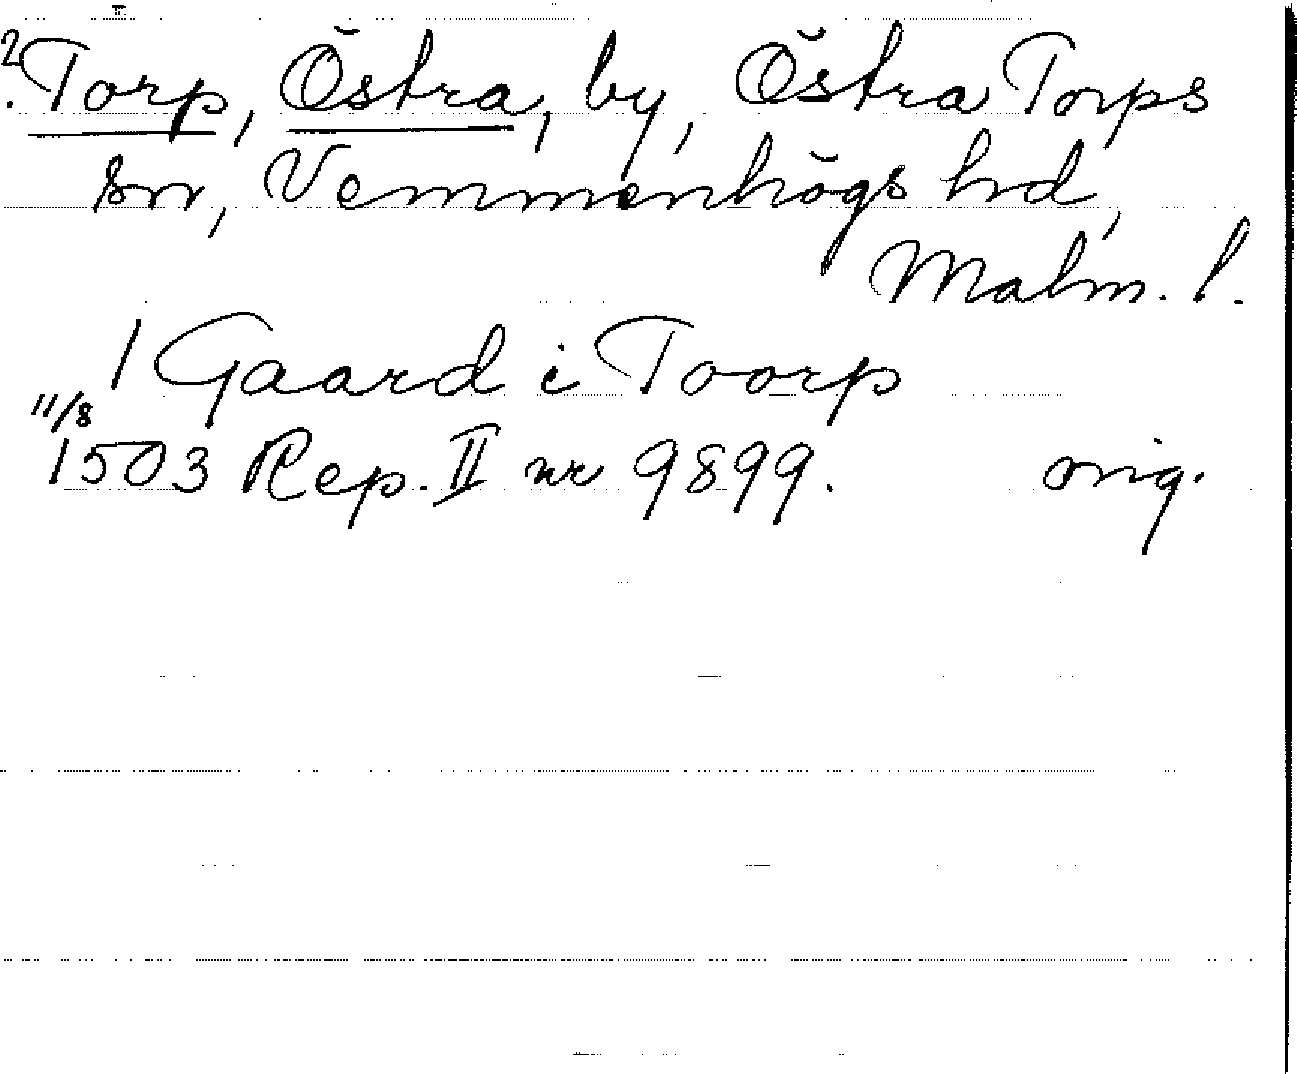 ? Torp, Östra, by, Östra Torps
sn, Vemmenhögs hd,
Malm. l.
1 Gaard i Toorp
11/8
1503 Rep. II nr 9899. orig.